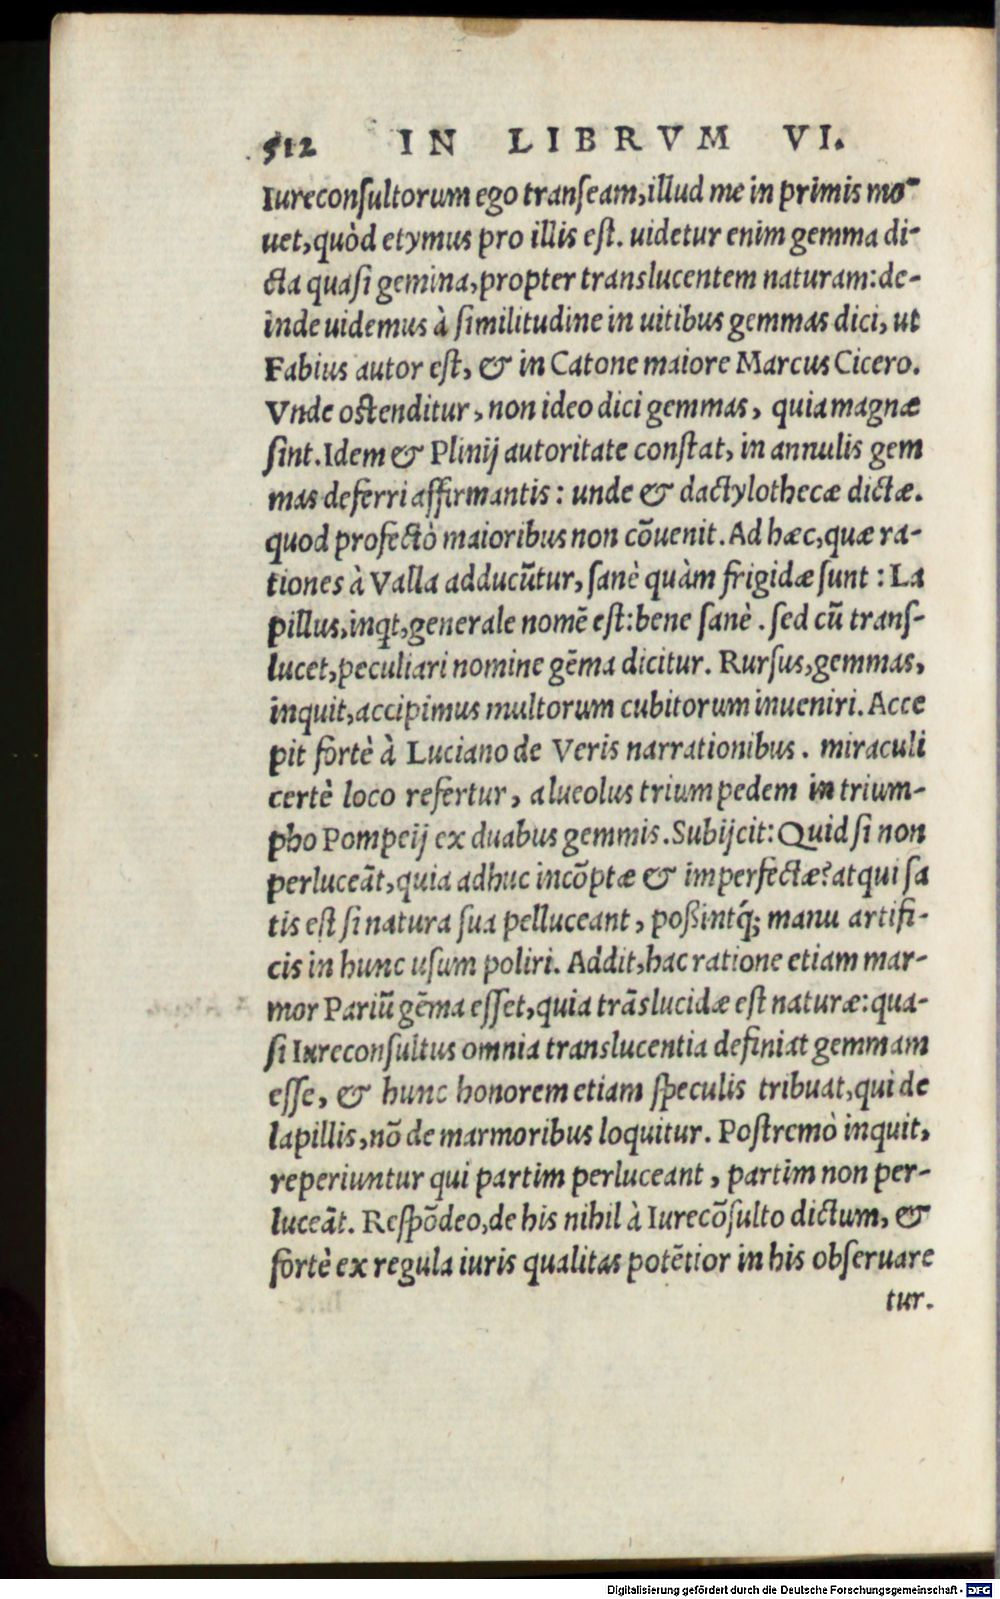 512 IN LIBRVM VI.
Iureconſultorum ego tranſeam,illud me in primis mo-
uet,quòd etymus pro illis eſt. uidetur enim gemma di-
cta quaſi gemina,propter translucentem naturam:de-
inde uidemus à ſimilitudine in uitibus gemmas dici, ut
Fabius autor eſt, & in Catone maiore Marcus Cicero.
Vnde oſtenditur, non ideo dici gemmas, quia magnæ
ſint.Idem & Plinij autoritate conſtat, in annulis gem
mas deferri affirmantis: unde & dactylothecæ dictæ.
quod profectò maioribus non cōuenit. Ad hæc,quæ ra-
tiones à Valla adducūtur, ſanè quàm frigidæ ſunt: La
pillus,inqt,generale nomē eſt:bene ſanè. ſed cū transſ-
lucet,peculiari nomine gēma dicitur. Rurſus,gemmas,
inquit,accipimus multorum cubitorum inueniri. Acce
pit fortè à Luciano de Veris narrationibus. miraculi
certè loco refertur, alueolus trium pedem in trium-
pho Pompeij ex duabus gemmis.Subijcit: Quid ſi non
perluceāt,quia adhuc incōptæ & imperfectæ?atqui ſa
tis eſt ſi natura ſua pelluceant, poßintq́; manu artifi-
cis in hunc uſum poliri. Addit,hac ratione etiam mar-
mor Pariū gēma eſſet,quia trāslucidæ eſt naturæ:qua-
ſi Iureconſultus omnia translucentia definiat gemmam
eſſe, & hunc honorem etiam ſpeculis tribuat,qui de
lapillis,nō de marmoribus loquitur. Poſtremò inquit,
reperiuntur qui partim perluceant, partim non per-
luceāt. Reſpōdeo,de his nihil à Iurecōſulto dictum, &
fortè ex regula iuris qualitas potētior in his obſeruare
tur.
Digitalisierung gefördert durch die Deutsche Forschungsgemeinschaft - DFG